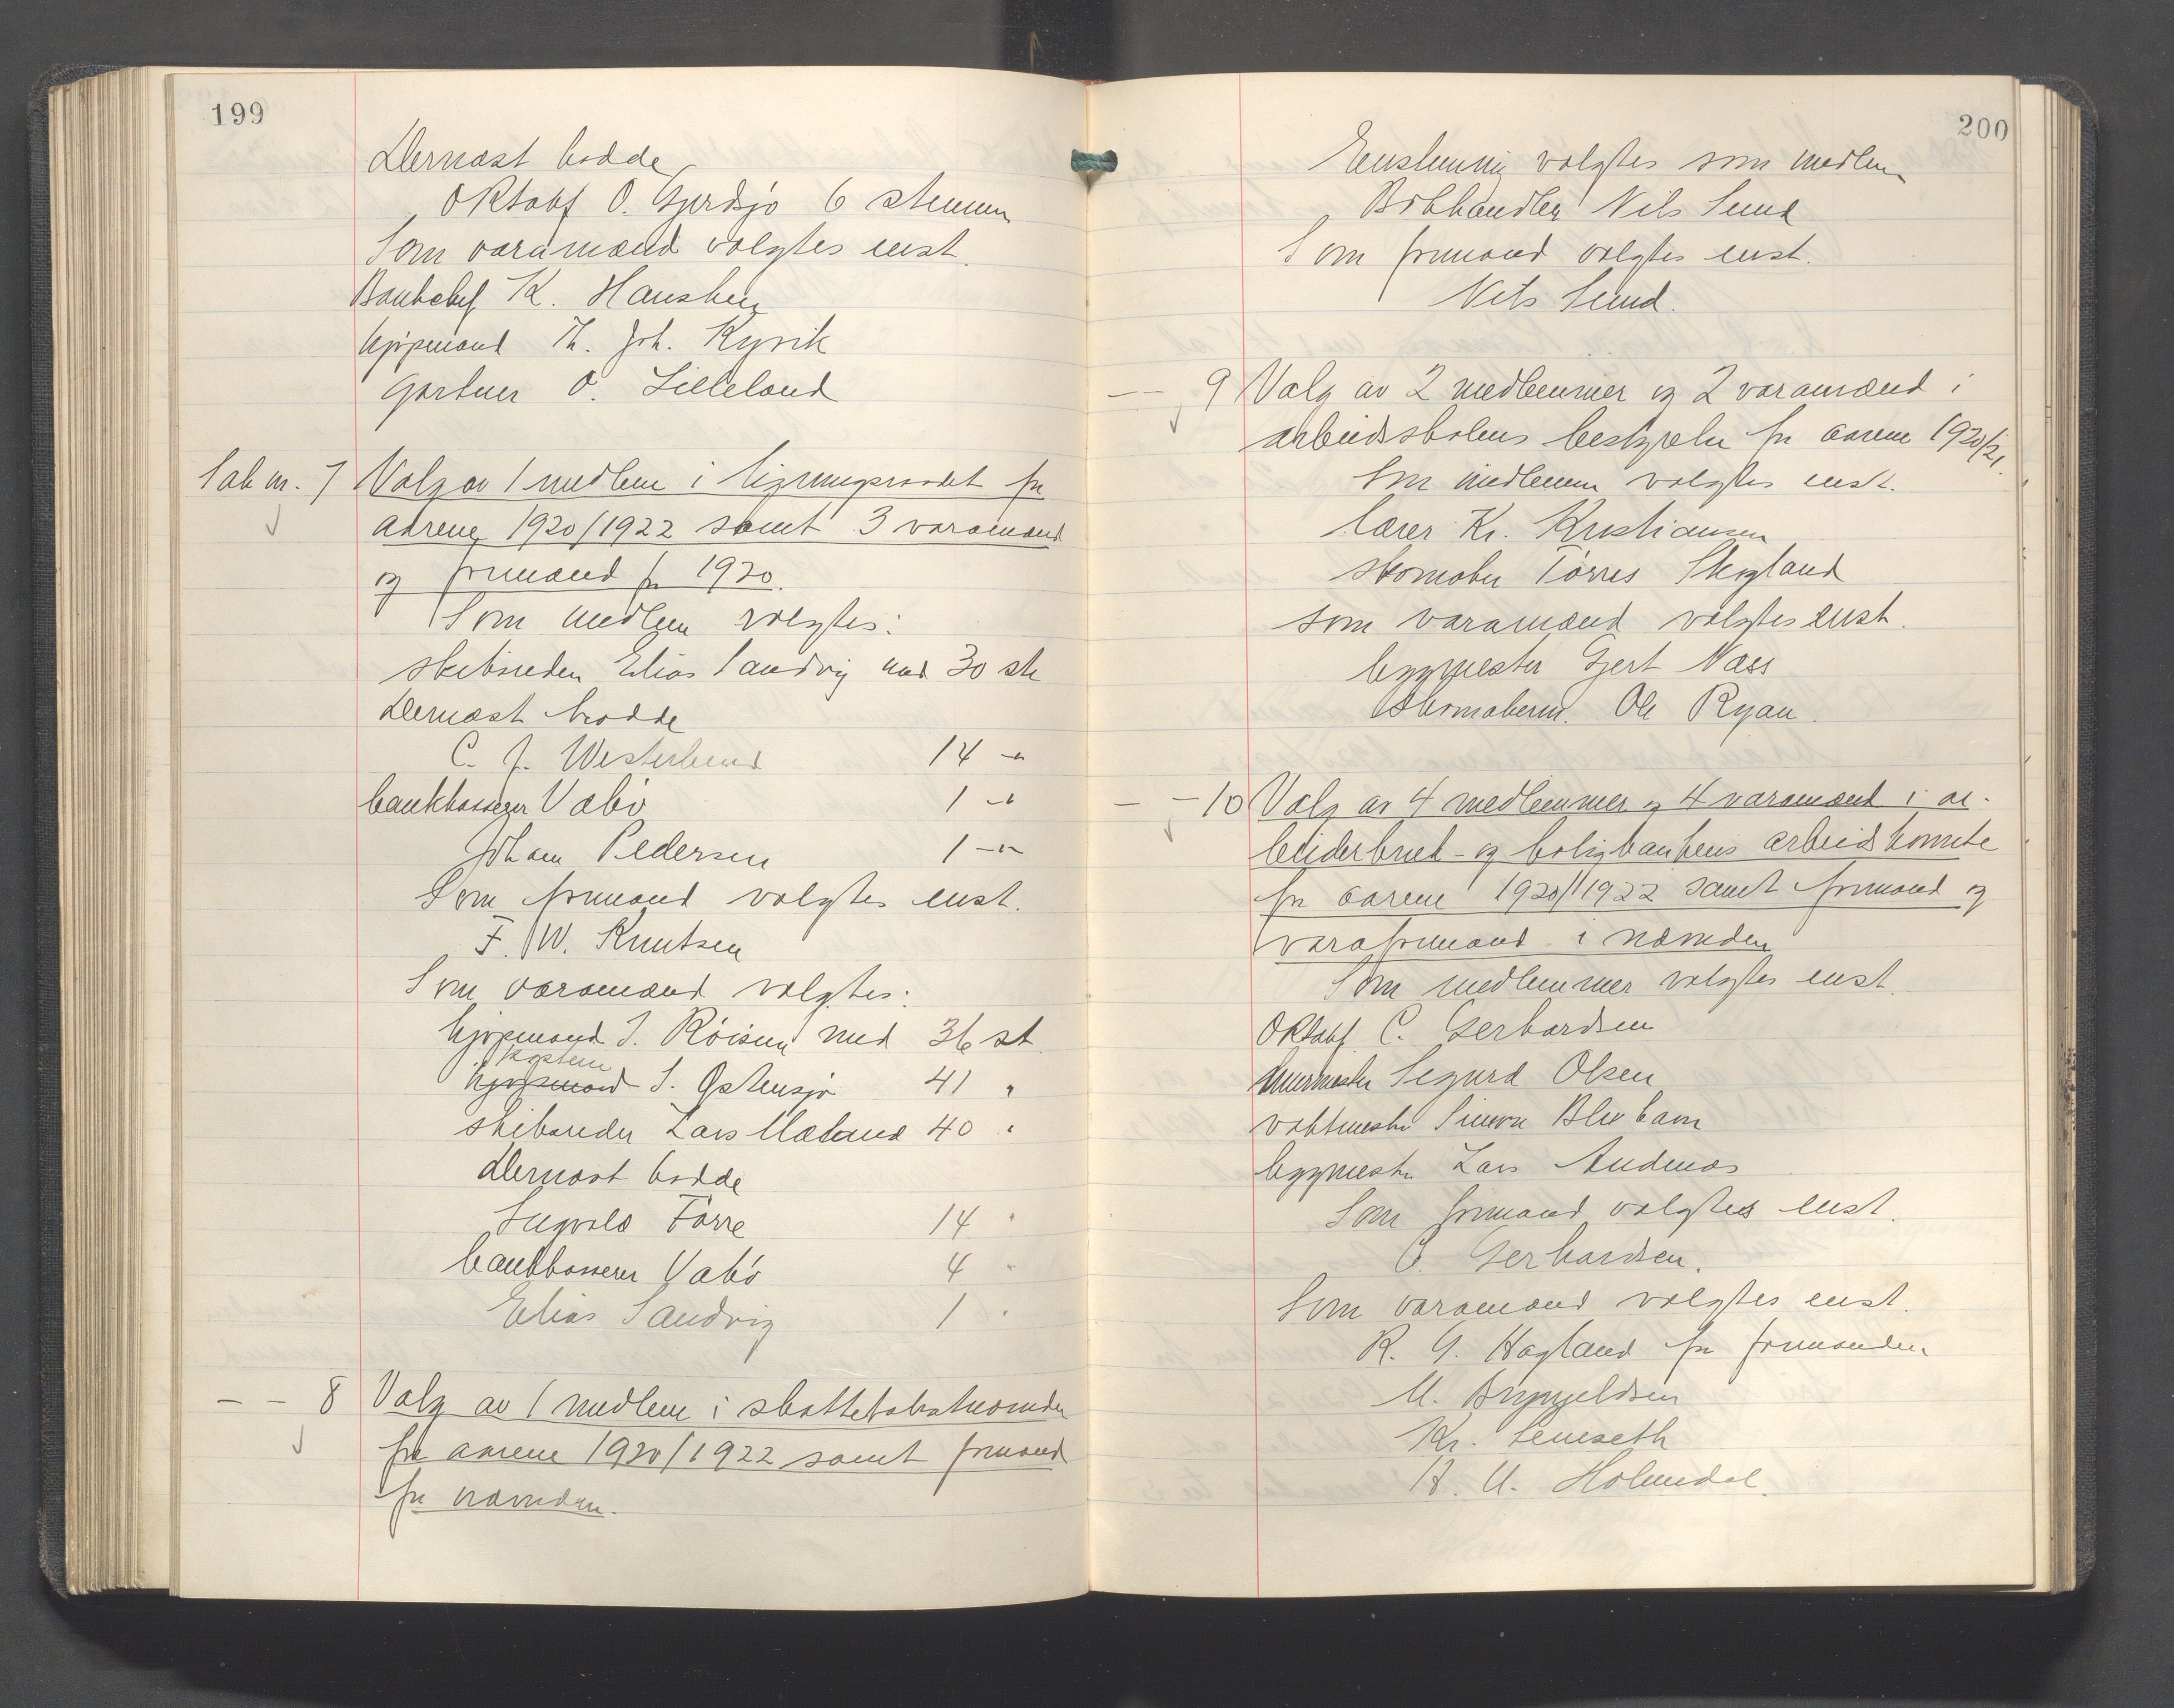 199
Dernæst hadde
O.R.sakf. O. Gjerdsjø 6 stemmer
Som varamænd valgtes enst.
Bankchef K. Hausken
kjøpmand Th. Joh. Kyvik
Gartner O. Lilleland
Sak nr. 7 Valg av 1 medlem i ligningsraadet for
aarene 1920/1922 samt 3 varamænd
og formand for 1920.
Som medlem valgtes:
skibsreder Elias Sandvig med 30 st
Dernæst hadde
C. J. Westerlund 14 -"-
bankkasserer Vabø 1 -"-
Johan Pedersen 1 -"-
Som formand valgtes enst.
F. W. Knutsen
Som varamænd valgtes:
kjøpmand J. Røisen med 36 st.
kaptein
kjøpmand S. Østensjø 41 "
skibsreder Lars Mæland 40 "
Dernæst hadde
Sigvald Førre 14 "
bankkasserer Vabø 4 "
Elias Sandvig 1 "
— — 8 Valg av 1 medlem i skattetakstnævnden
for aarene 1920/1922 samt formand
for nævnden.
200
Enstemmig valgtes som medlem
Bokhandler Nils Sund
Som formand valgtes enst.
Nils Sund.
— — 9 Valg av 2 medlemmer og 2 varamænd i
arbeidsskolens bestyrelse for aarene 1920/21.
Som medlemmer valgtes enst.
lærer Kr. Kristiansen
skomaker Tørres Skogland
som varamænd valgtes enst.
byggmester Gert Næss
skomakerm. Ole Ryan.
— — 10 Valg av 4 medlemmer og 4 varamænd i ar-
beiderbruk- og boligbankens arbeidskomite
for aarene 1920/1922 samt formand og
varaformand i nævnden
Som medlemmer valgtes enst.
O.R.sakf. C. Gerhardsen
Murmester Sigurd Olsen
vaktmester Simon
byggmester Lars Andenæs
Som formand valgtes enst.
C. Gerhardsen.
Som varamænd valgtes enst.
R. G. Hagland for formanden
M. Brynjeldsen
Kr. Lemseth
H. M. Holmedal.